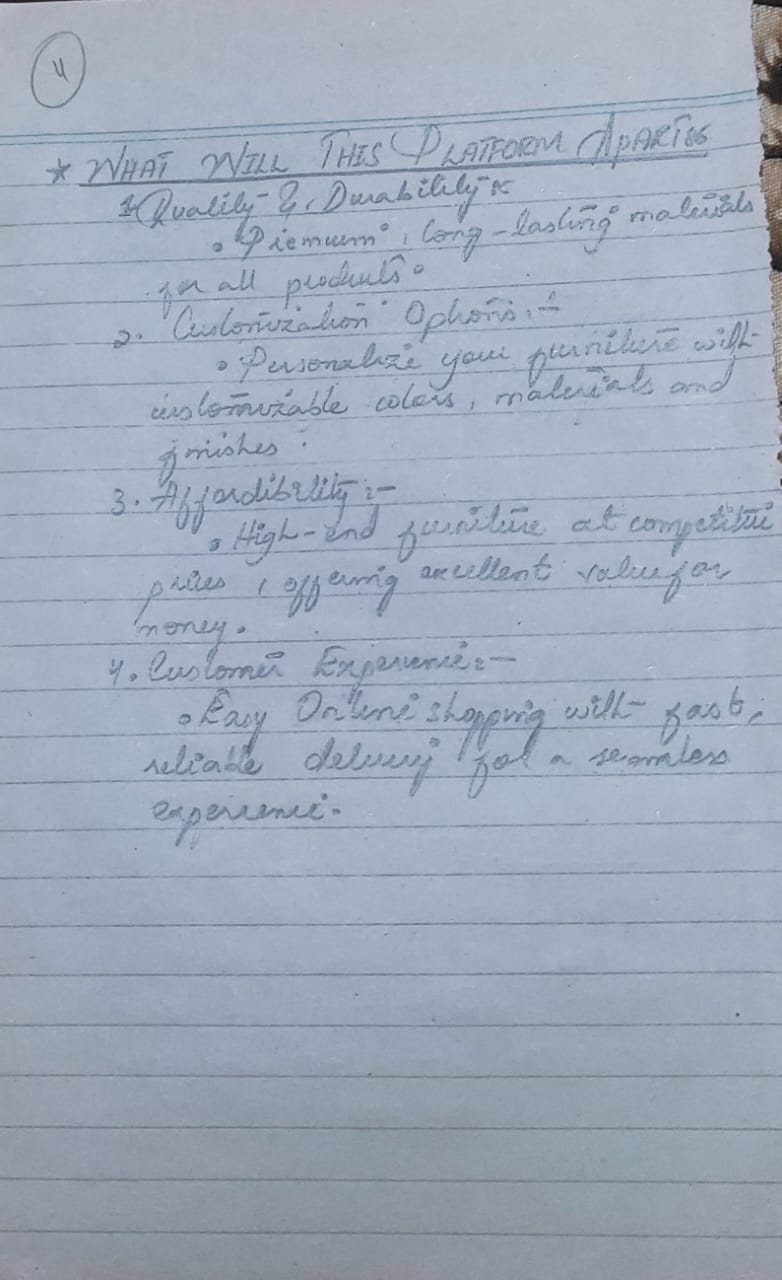 4
* WHAT WILL THIS PLATFORM APART
1. Quality & Durability:-
• Premium, long-lasting materials
for all products.
2. Customization Options:-
• Personalize your furniture with
customizable colors, materials and
finishes.
3. Affordibility:-
• High-end furniture at competitive
prices, offering excellent value for
money.
4. Customer Experience:-
• Easy Online shopping with fast,
reliable delivery for a seamless
experience.